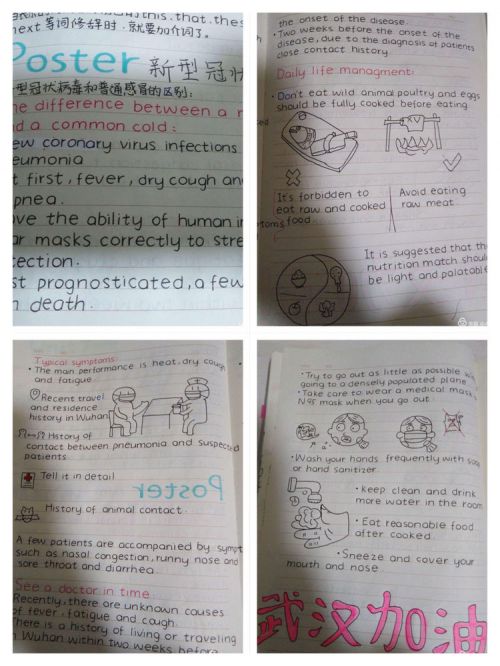 this.that.thes
next等词修辞时,就要加介词了。
Poster 新型冠状
型冠状病毒和普通感冒的区别:
he difference between a n
nd a common cold:
ew coronary virus infections
eumonia
t first, fever, dry cough an
pnea.
ve the ability of human in
ar masks correctly to stre
tection.
st prognosticated, a few
n death.
the onset of the disease.
• Two weeks before the onset of the
disease, due to the diagnosis of patients
close contact history.
Daily life managment:
• Don't eat wild animal poultry and eggs
should be fully cooked before eating.
It's forbidden to
eat raw and cooked
food
Avoid eating
raw meat.
It is suggested that the
nutrition match shoul
be light and palatable
Typical symptoms:
• The main performance is heat, dry cough
and fatigue.
Recent travel
and residence
history in Wuhan
History of
contact between pneumonia and suspected
patients.
Tell it in detail
Poster
History of animal contact.
A few patients are accompanied by sympt
such as nasal congestion, runny nose and
sore throat and diarrhea.
See a doctor in time
Recently, there are unknown causes
of fever, fatigue and cough.
There is a history of living or traveling
n Wuhan within two weeks before
• Try to go out as little as possible wi
going to a densely populated plane
• Take care to wear a medical mask
N95 mask when you go out.
• Wash your hands frequently with soap
or hand sanitizer.
• keep clean and drink
more water in the room
• Eat reasonable food
after cooked.
• Sneeze and cover your
mouth and nose.
武汉加油